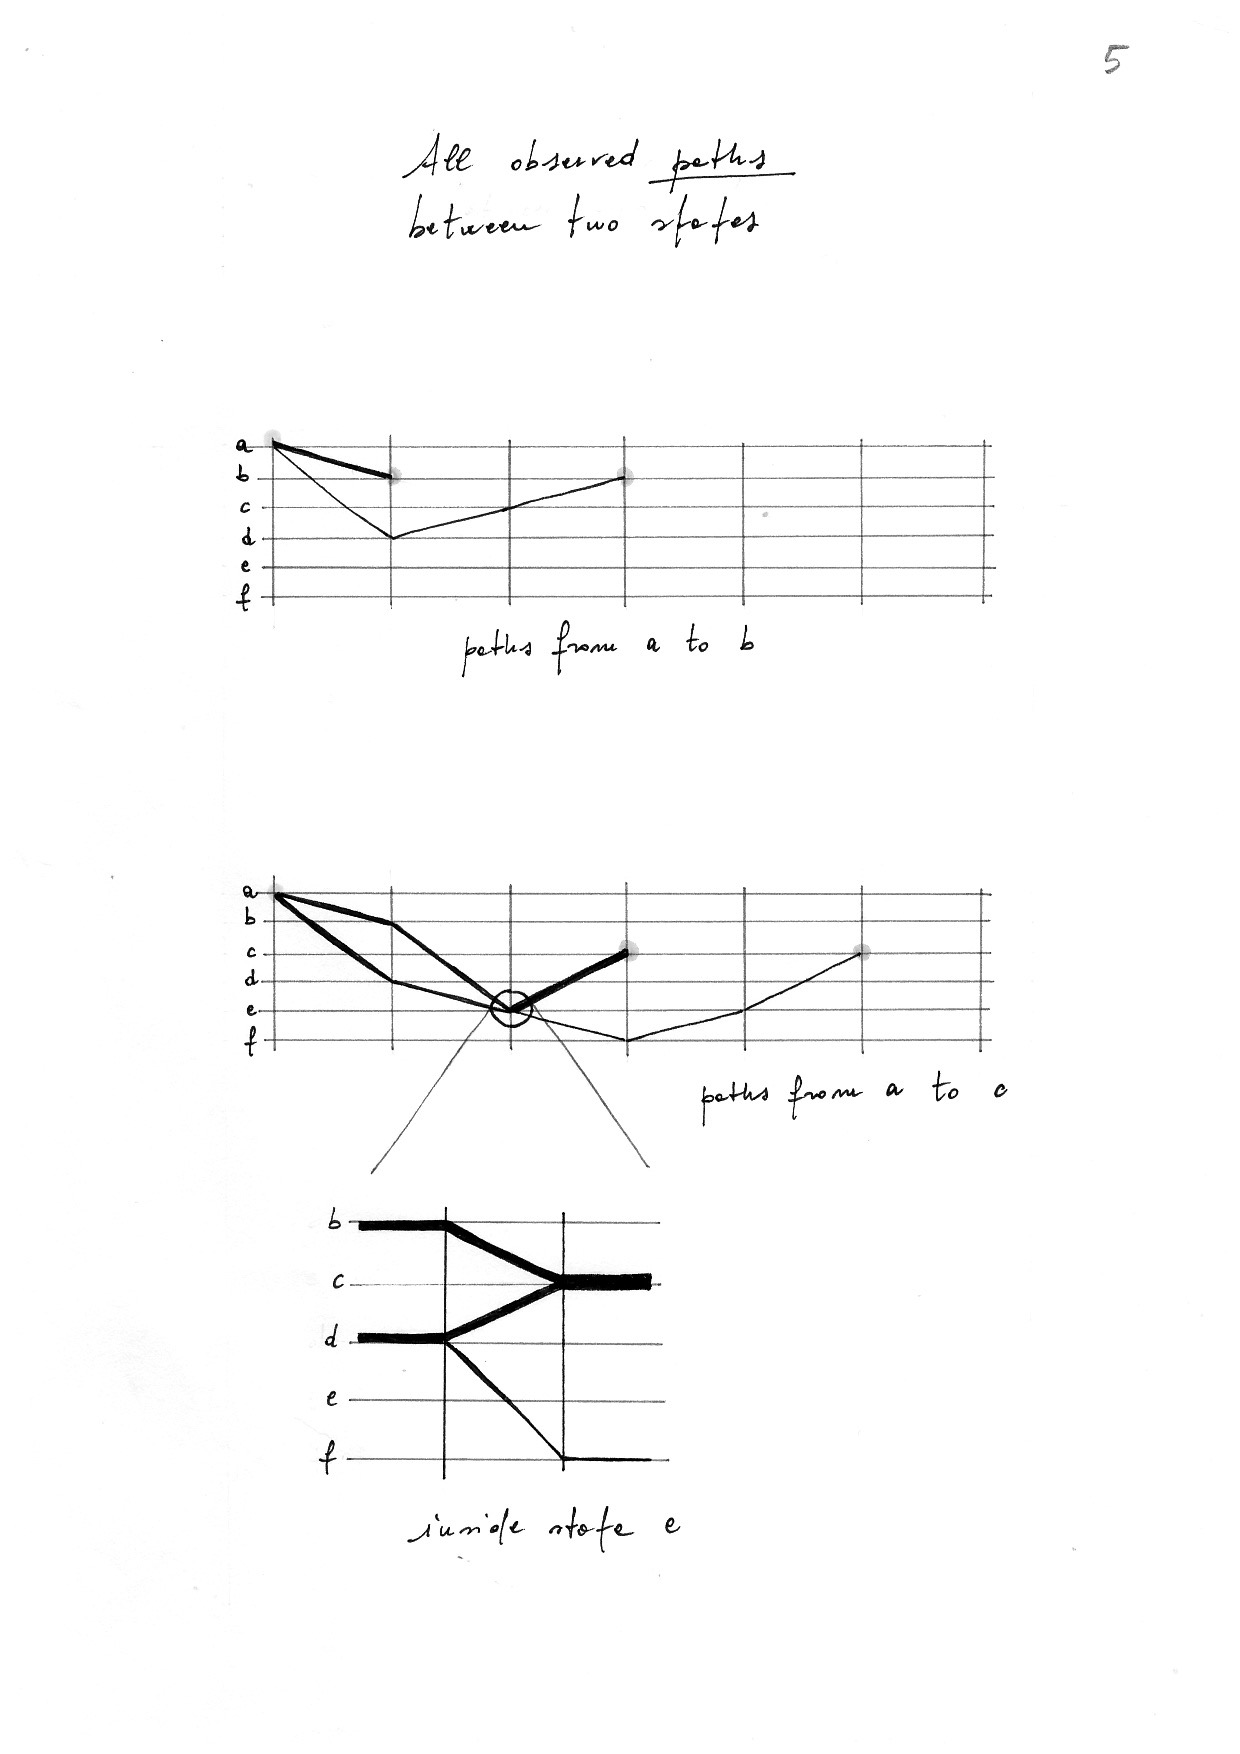 5
All observed paths
between two states
a
b
c
d
e
f
paths from a to b
a
b
c
d
e
f
paths from a to c
b
c
d
e
f
inside state e